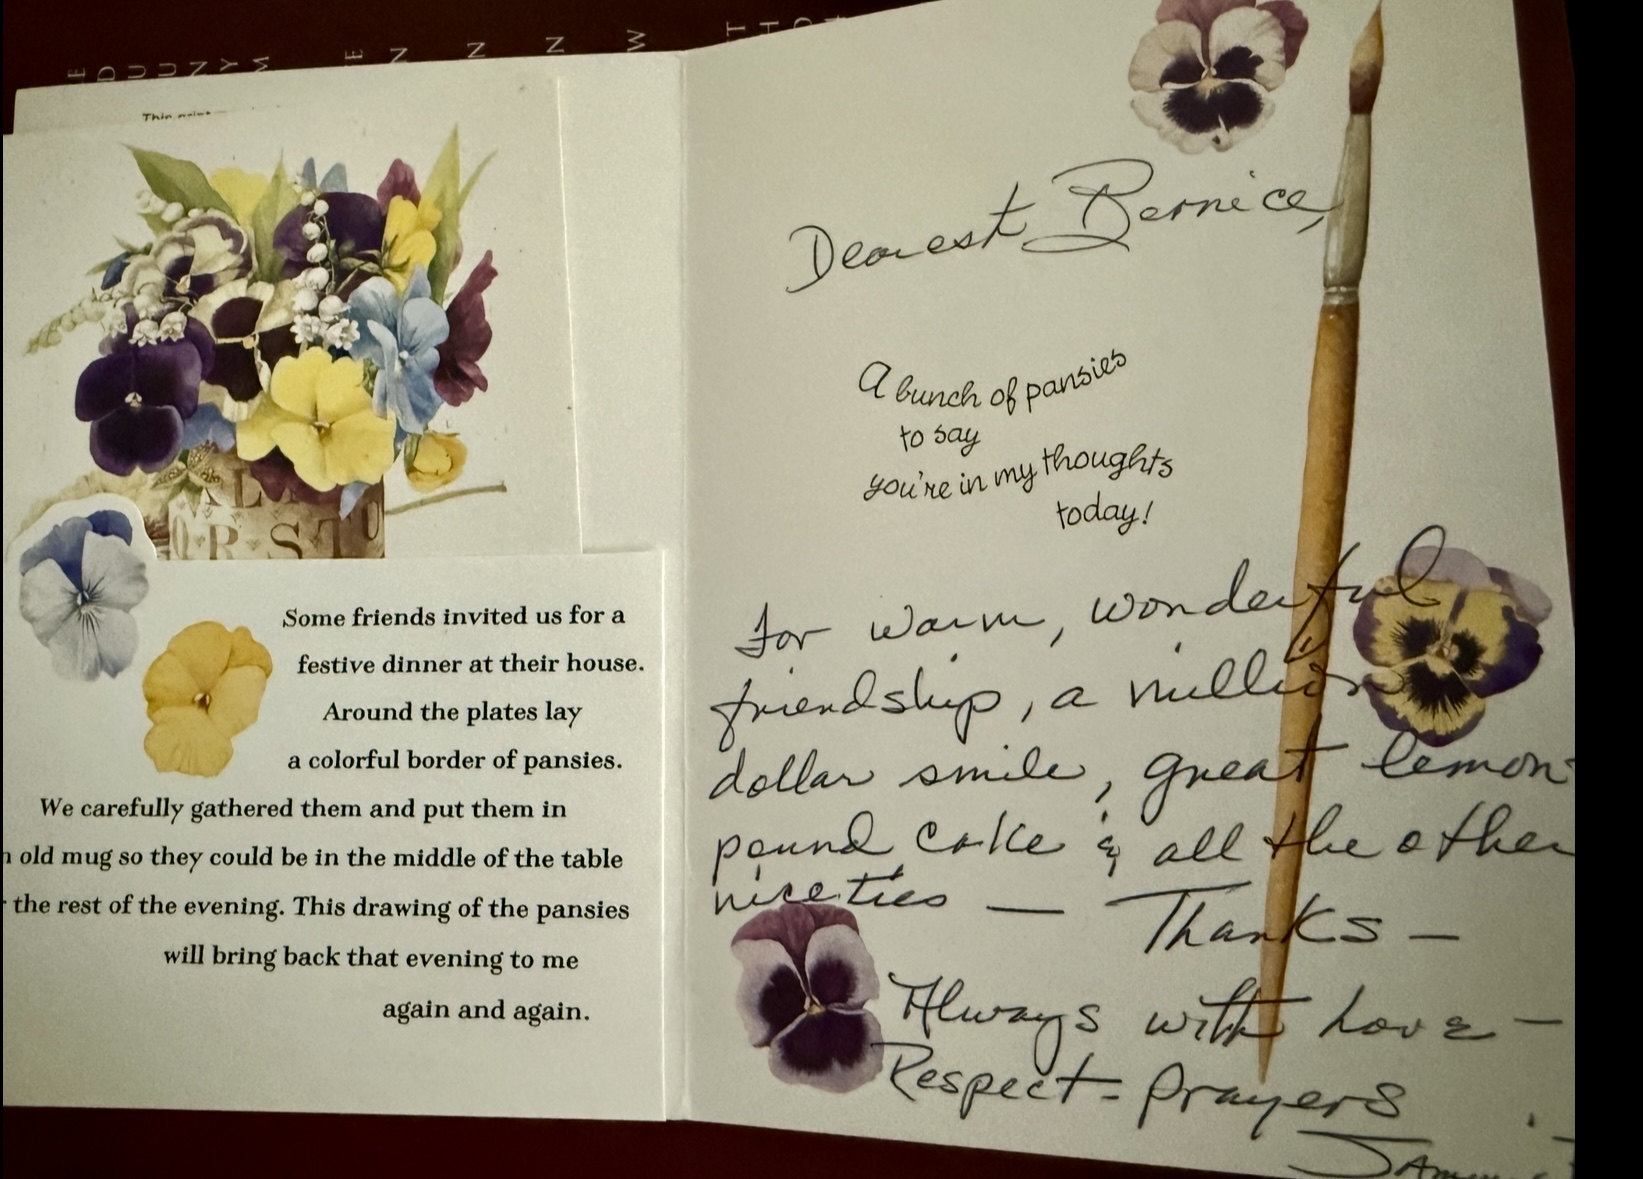 E D U U N Y M E N N N W T H O
This print
ALL
OR STO
Some friends invited us for a
festive dinner at their house.
Around the plates lay
a colorful border of pansies.
We carefully gathered them and put them in
old mug so they could be in the middle of the table
the rest of the evening. This drawing of the pansies
will bring back that evening to me
again and again.
Dearest Bernice,
A bunch of pansies
to say
you're in my thoughts
today!
For warm, wonderful
friendship, a million
dollar smile, great lemon
pound cake & all the other
niceties — Thanks —
Always with Love —
Respect - Prayers